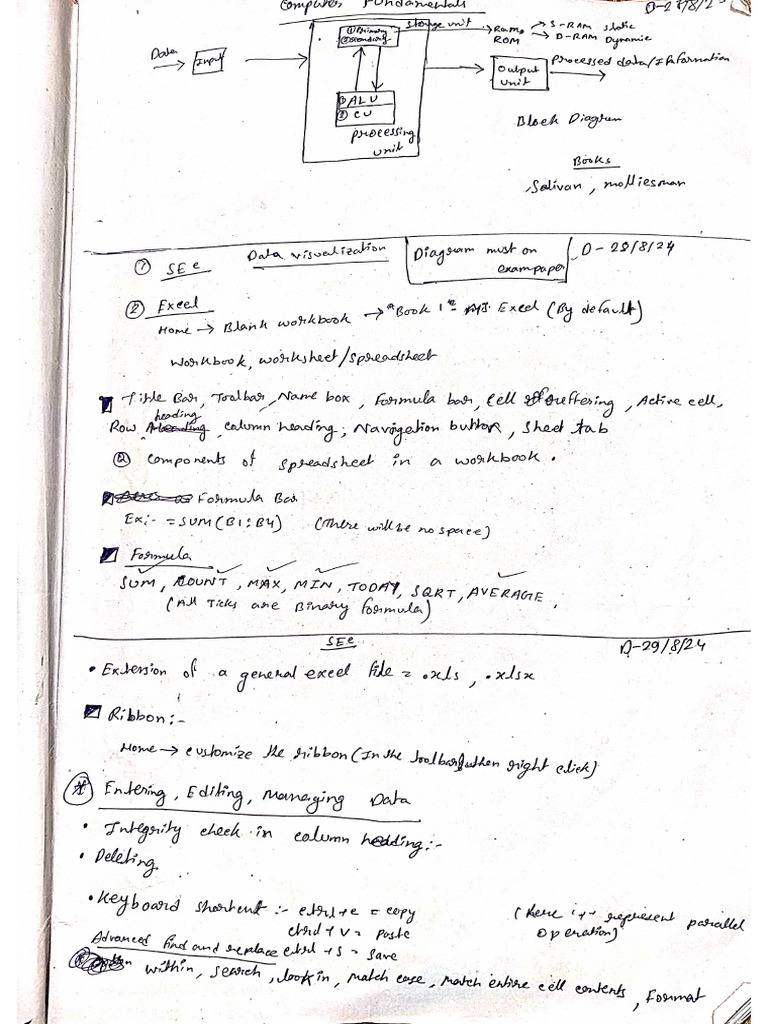 Computer Fundamentals
D-27/8/2
Data
Input
① Primary
② Secondary
storage unit
RAM
ROM
S-RAM static
D-RAM Dynamic
① ALU
② CU
processing
unit
Output
unit
processed data/Information
Block Diagram
Books
Salivan, molliesman
Data visualization
Diagram must on
exampaper
D-28/8/24
① SEC
② Excel
Home → Blank workbook → "Book 1" - Excel (By default)
Workbook, worksheet/spreadsheet
Title Bar, Toolbar, Name box, Formula bar, Cell , Active cell,
Row heading, column heading; Navigation button, Sheet tab
② components of spreadsheet in a workbook.
Formula Bar
Ex:- =SUM(B1:B4) (There will be no space)
Formula
SUM, COUNT, MAX, MIN, TODAY, SQRT, AVERAGE,
(All Ticks are Binary formula)
SEC
D-29/8/24
• Extension of a general excel file = .xls, .xlsx
Ribbon:-
Home → customize the ribbon (In the toolbar then right click)
* Entering, Editing, Managing Data
• Integrity check in column heading:-
• Deleting
• Keyboard shortcut :- ctrl+c = copy
(here '+' represent parallel
operation)
ctrl+v = paste
ctrl+s = save
Advanced find and replace
within, search, look in, match case, match entire cell contents, Format